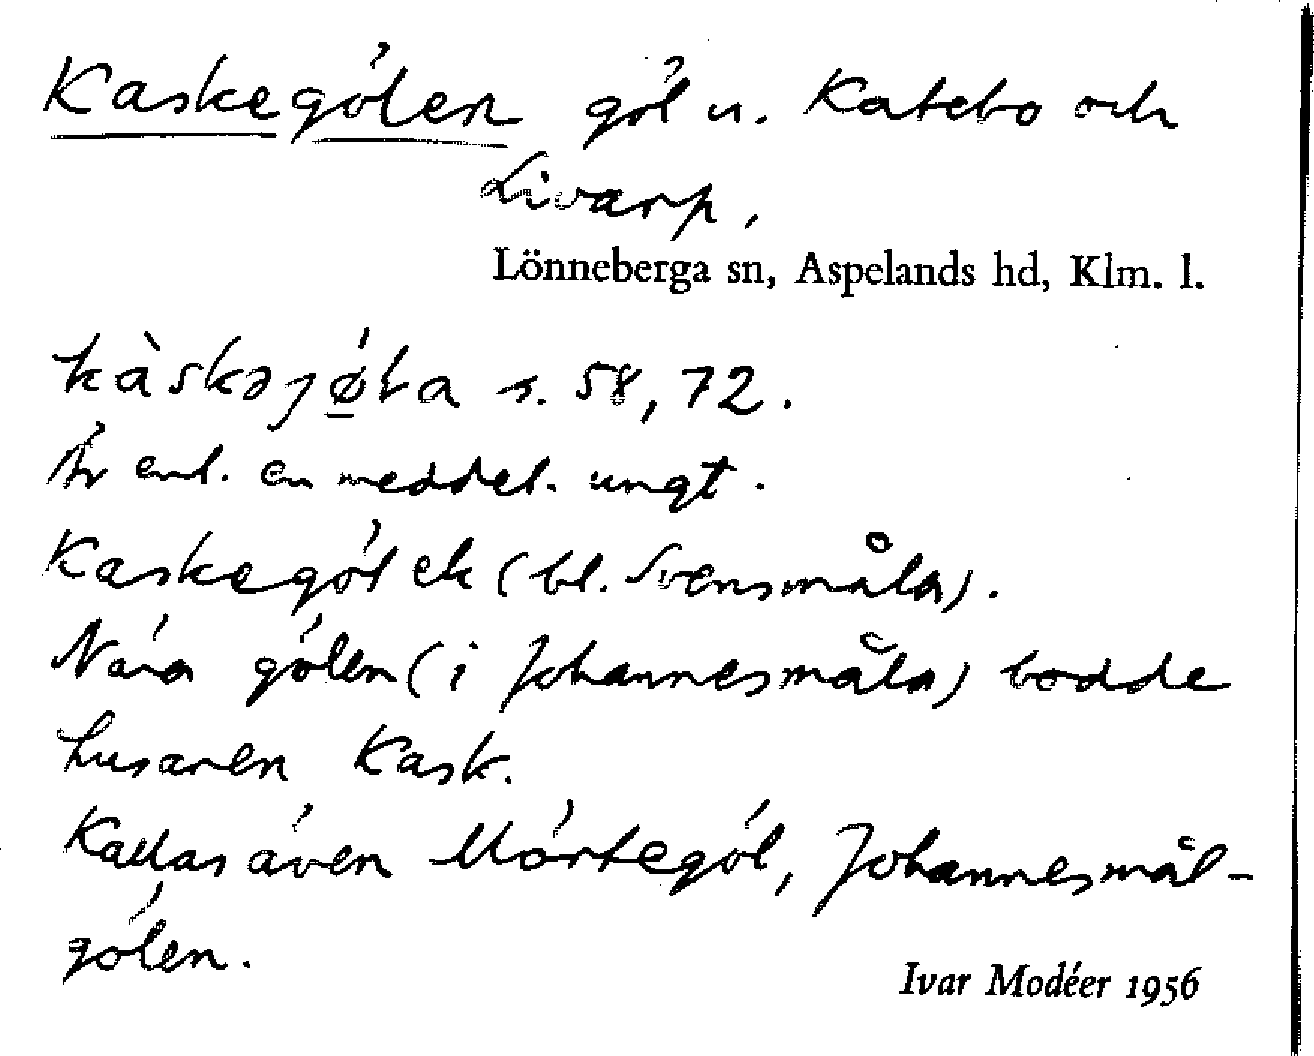 Kaskegölen göl u. Katebo och
Livarp,
Lönneberga sn, Aspelands hd, Klm. l.
kàskəjǿ̲ta s. 58, 72.
Är enl. en meddel. ungt.
Kaskegöl ek (bl. Svensmåla).
Nära gölen (i Johannesmåla) bodde
husaren Kask.
Kallas även Mörtegöl, Johannesmål-
gölen.
Ivar Modéer 1956